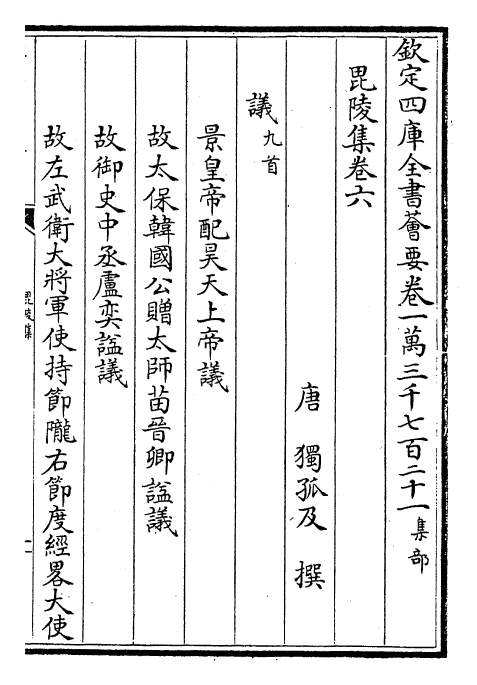 欽定四庫全書薈要卷一萬三千七百二十一集部
毘陵集卷六
唐 獨孤及 撰
議九首
景皇帝配昊天上帝議
故太保韓國公贈太師苗晉卿諡議
故御史中丞盧奕諡議
故左武衛大將軍使持節隴右節度經畧大使
毘陵集